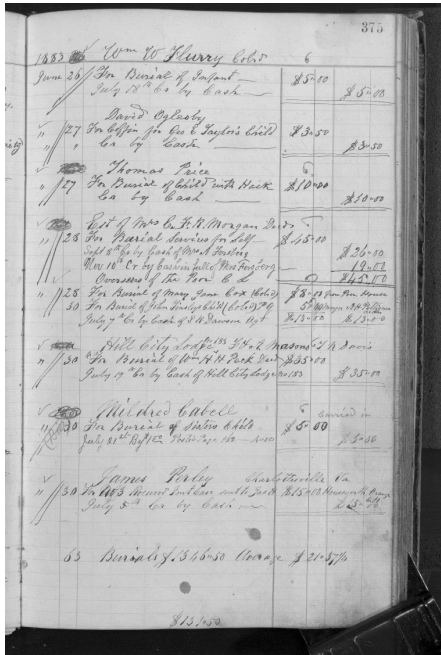 375
1883 Wm W Flurry Cold 6
June 26 For Burial of Infant $5.00
July 18th By Cash $5.00
David Oglesby
" 27 For Coffin for Geo E Taylor's Child $3.50
" Cr By Cash $3.50
Thomas Price
" 27 For Burial of Child with Hack $10.00
Cr By Cash $10.00
Est of Mrs C. F. R. Morgan Decd
" 28 For Burial Services for Self $45.00
Sept 8th Cr by Cash of Mrs A Forsberg $26.00
Nov 10th Cr by Cash in full of Mrs Forsberg 19.00
Overseers of the Poor C L $45.00
" 28 For Burial of Mary Jane Cox (Cold) $8.00 from Poor House
30 For Burial of John Child (Cold)
July 7th Cr by Cash of Agt $13.00 $13.00
Hill City Lodge 183 Masons
" 30 For Burial of Wm H H Peck Decd $35.00
July 19th Cr by Cash of Hill City Lodge No 183 $35.00
Mildred Cabell carried in
" 30 For Burial of Sisters Child $5.00
July 21st By Posted Page $5.00
James Perley Charlottsville Va
" 30 For No 3 Case sent to $15.00
July 5th Cr by Cash
63 Burials $1346.50 Average $21.37
$131.50